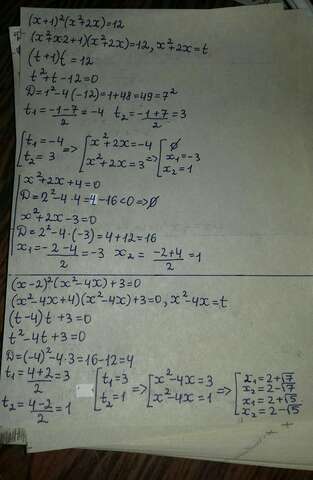 (x+1)²(x²+2x)=12
(x²+x2+1)(x²+2x)=12, x²+2x=t
(t+1)t=12
t²+t-12=0
D=1²-4(-12)=1+48=49=7²
t₁=(-1-7)/2=-4 t₂=(-1+7)/2=3
[t₁=-4 => [x²+2x=-4 => [∅
t₂=3 x²+2x=3 x₁=-3
x₂=1
x²+2x+4=0
D=2²-4·4=4-16<0=>∅
x²+2x-3=0
D=2²-4·(-3)=4+12=16
x₁=(-2-4)/2=-3 x₂=(-2+4)/2=1
(x-2)²(x²-4x)+3=0
(x²-4x+4)(x²-4x)+3=0, x²-4x=t
(t-4)t+3=0
t²-4t+3=0
D=(-4)²-4·3=16-12=4
t₁=(4+2)/2=3 [t₁=3 => [x²-4x=3 => [x₁=2+√7
t₂=(4-2)/2=1 t₂=1 x²-4x=1 x₂=2-√7
x₁=2+√5
x₂=2-√5